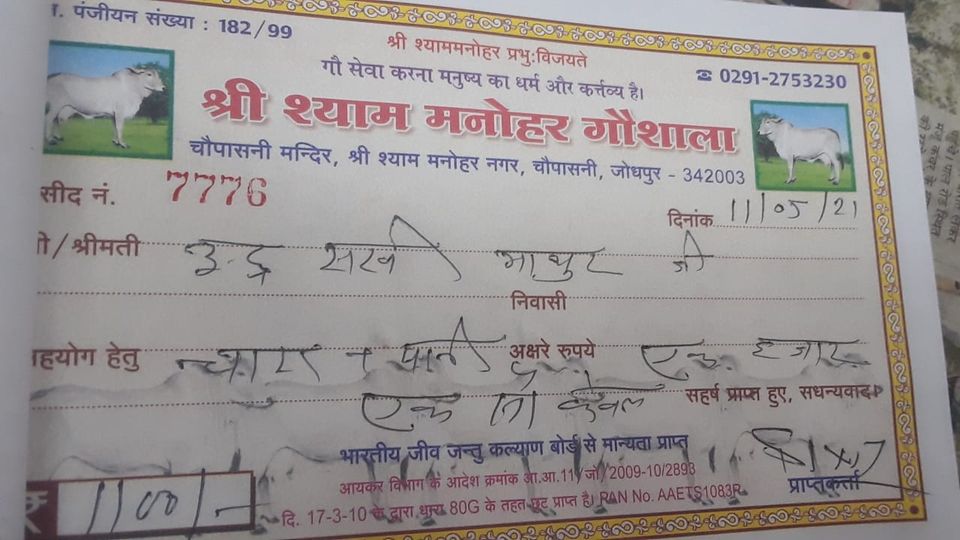 पंजीयन संख्या : 182/99
श्री श्याममनोहर प्रभु:विजयते
☎ 0291-2753230
गौ सेवा करना मनुष्य का धर्म और कर्त्तव्य है।
श्री श्याम मनोहर गौशाला
चौपासनी मन्दिर, श्री श्याम मनोहर नगर, चौपासनी, जोधपुर - 342003
सीद नं. 7776
दिनांक 11/05/21
/श्रीमती इन्द्र सखी माथुर जी
निवासी
हयोग हेतु चारा + पानी अक्षरे रुपये एक हजार
एक सौ केवल सहर्ष प्राप्त हुए, सधन्यवाद
भारतीय जीव जन्तु कल्याण बोर्ड से मान्यता प्राप्त
आयकर विभाग के आदेश क्रमांक आ.आ.11/जो/2009-10/2893
दि. 17-3-10 के द्वारा धारा 80G के तहत छूट प्राप्त है। PAN No. AAETS1083R
प्राप्तकर्ता
₹ 1100/-